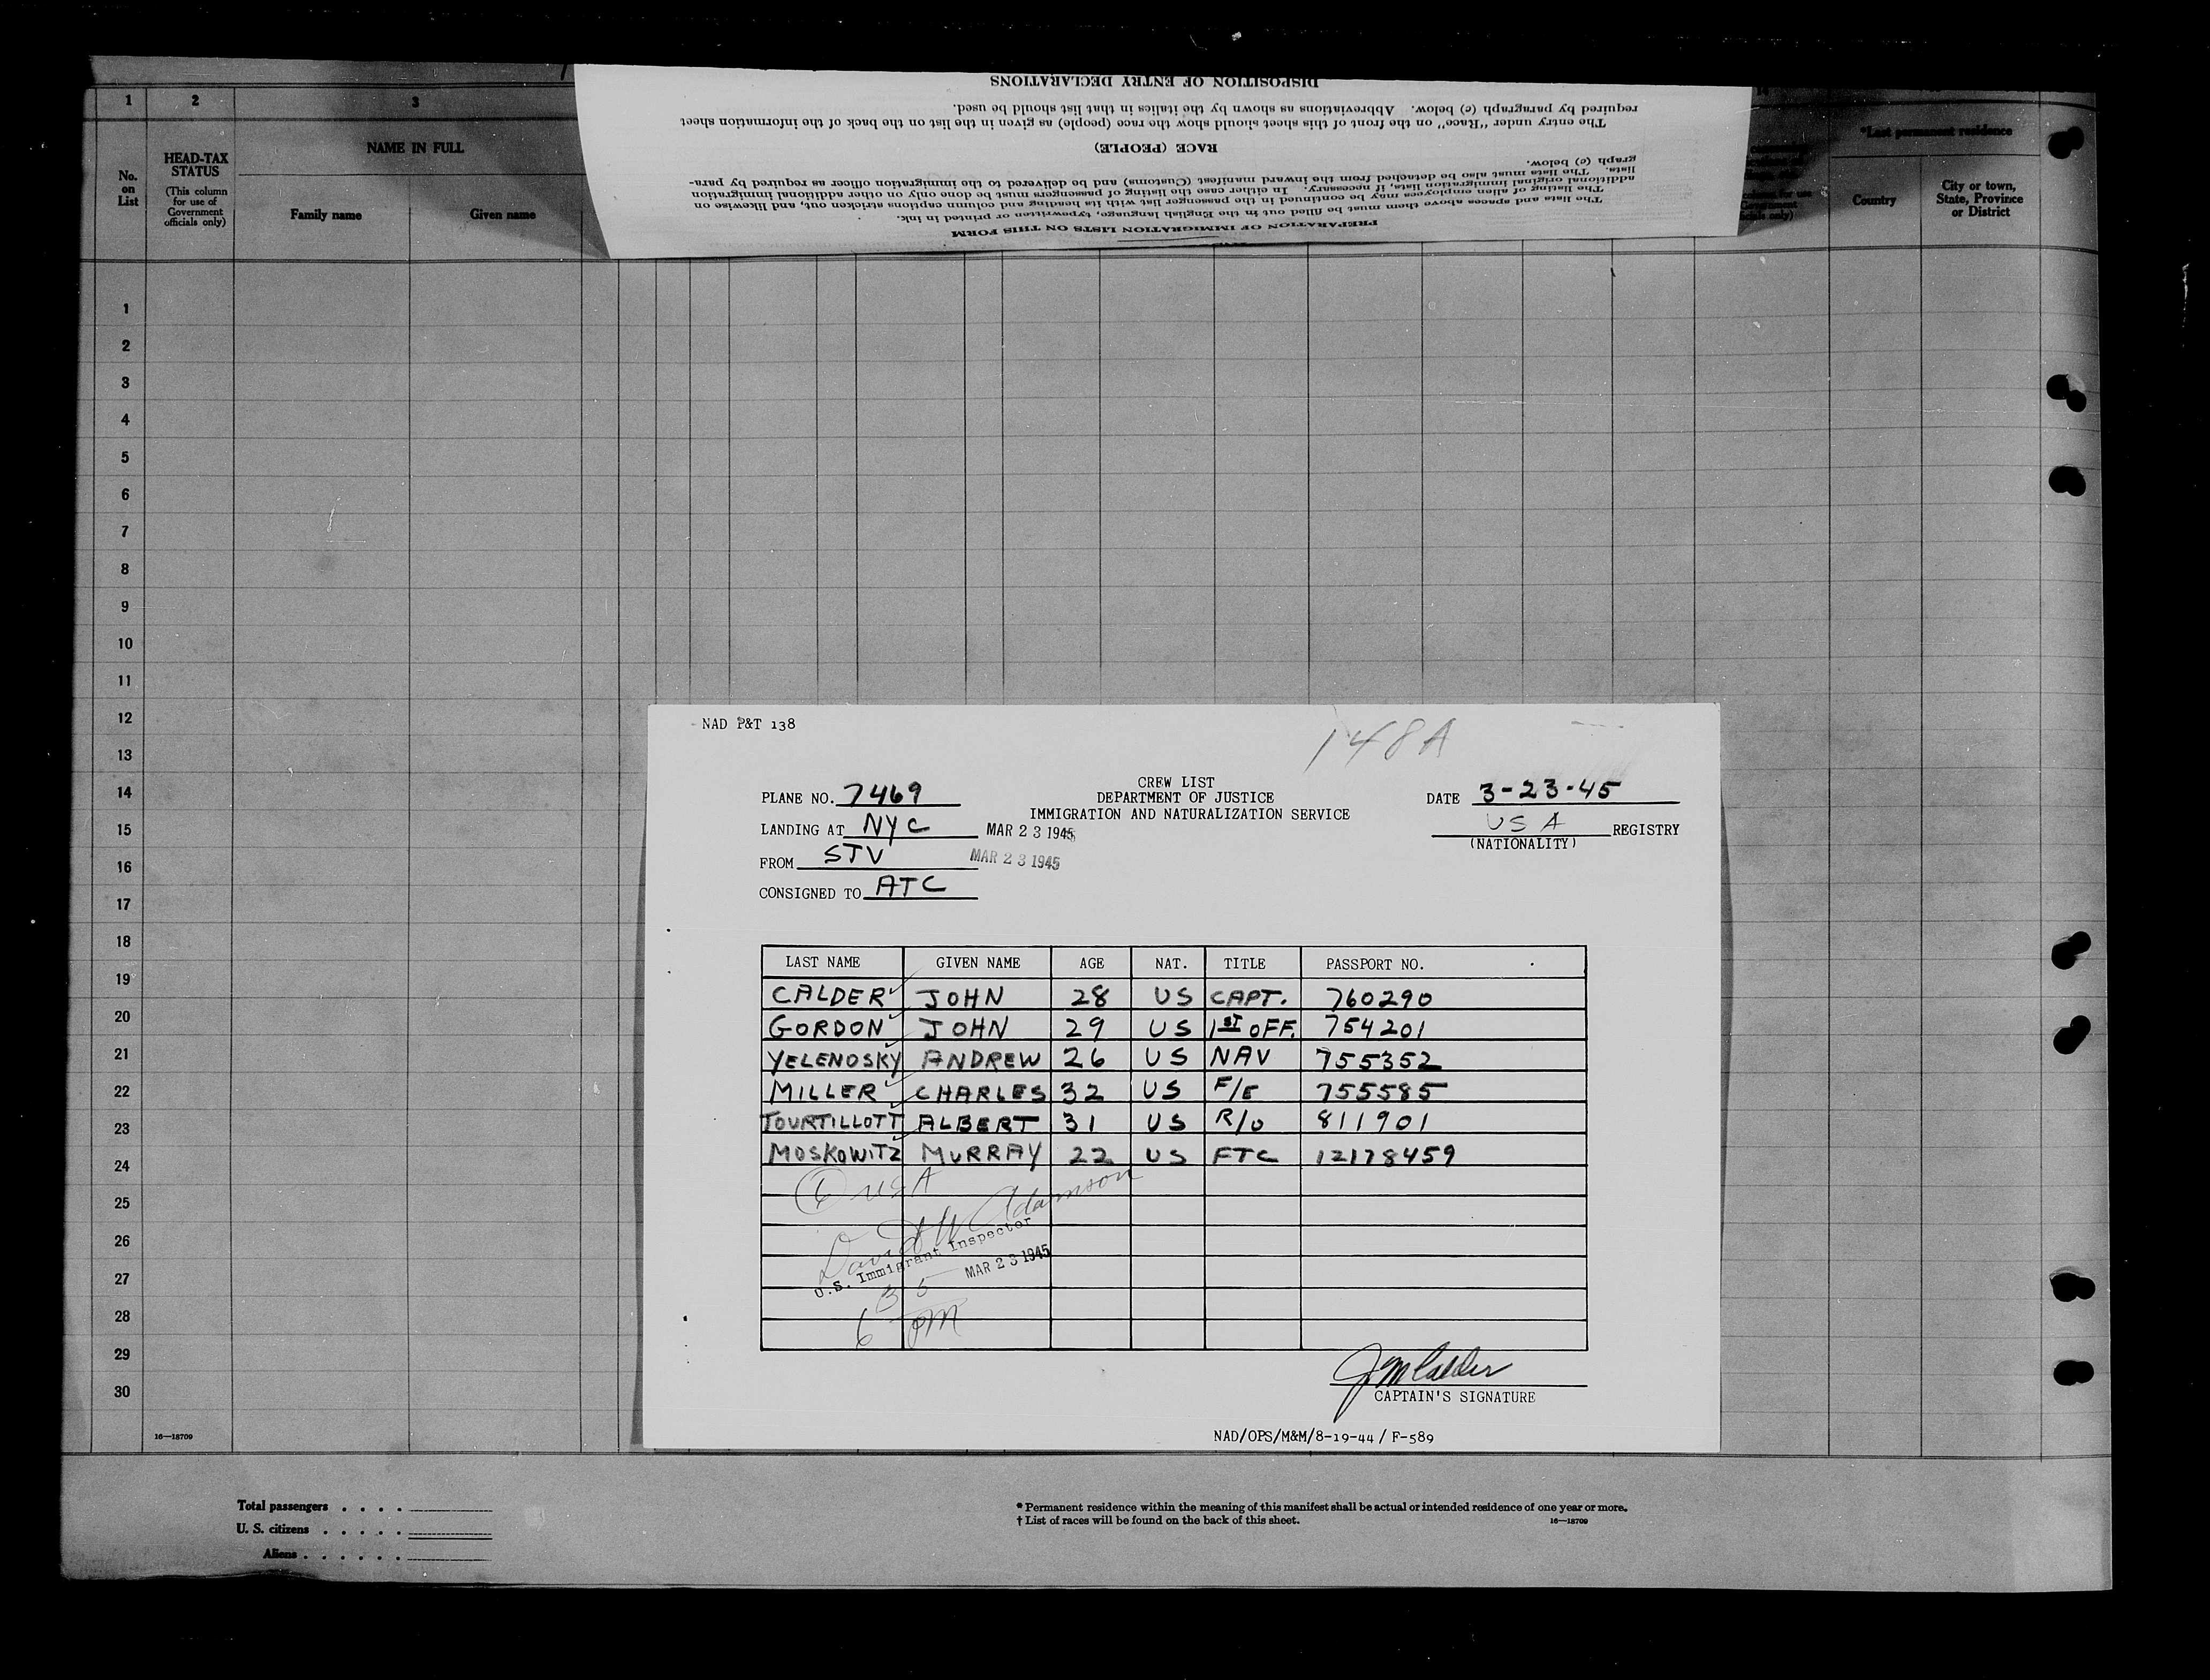 1 2 3
No. on List
HEAD-TAX STATUS
(This column for use of Government officials only)
NAME IN FULL
Family name Given name
DISPOSITION OF ENTRY DECLARATIONS
required by paragraph (c) below. Abbreviations as shown by the italics in that list should be used.
The entry under "Race" on the front of this sheet should show the race (people) as given in the list on the back of the information sheet
RACE (PEOPLE)
graph (c) below.
lists. The lists must also be detached from the inward manifest (Customs) and be delivered to the immigration officer as required by para-
additional original immigration lists, if necessary. In either case the listing of passengers must be done only on other additional immigration
The listing of alien employees may be continued in the passenger list with its heading and column captions stricken out, and likewise on
The lists and spaces above them must be filled out in the English language, typewritten or printed in ink.
PREPARATION OF IMMIGRATION LISTS ON THIS FORM
*Last permanent residence
Country
City or town, State, Province or District
1
2
3
4
5
6
7
8
9
10
11
12
13
14
15
16
17
18
19
20
21
22
23
24
25
26
27
28
29
30
16—18709
NAD P&T 138
148A
CREW LIST
DEPARTMENT OF JUSTICE
IMMIGRATION AND NATURALIZATION SERVICE
PLANE NO. 7469
DATE 3-23-45
LANDING AT NYC MAR 23 1945
USA REGISTRY
(NATIONALITY)
FROM STV MAR 23 1945
CONSIGNED TO ATC
LAST NAME GIVEN NAME AGE NAT. TITLE PASSPORT NO.
CALDER JOHN 28 US CAPT. 760290
GORDON JOHN 29 US 1ST OFF. 754201
YELENOSKY ANDREW 26 US NAV 755352
MILLER CHARLES 32 US F/E 755585
TOURTILLOTT ALBERT 31 US R/O 811901
MOSKOWITZ MURRAY 22 US FTC 12178459
6 USA
David W Adamson
U.S. Immigrant Inspector
MAR 23 1945
6 35 PM
J M Calder
CAPTAIN'S SIGNATURE
NAD/OPS/M&M/8-19-44 / F-589
Total passengers . . . .
U. S. citizens . . . . .
Aliens . . . . . .
* Permanent residence within the meaning of this manifest shall be actual or intended residence of one year or more.
† List of races will be found on the back of this sheet.
16—18709